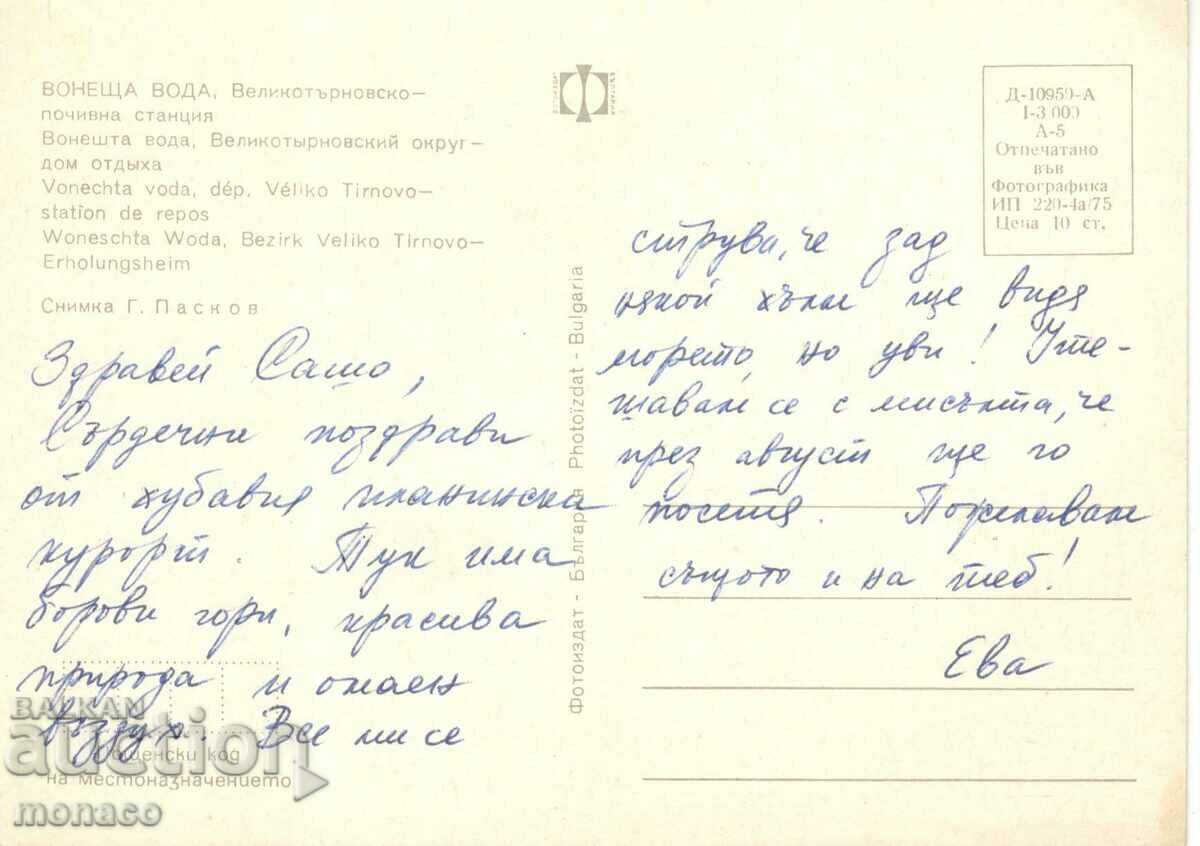 ВОНЕЩА ВОДА, Великотърновско—
почивна станция
Вонешта вода, Великотырновский округ—
дом отдыха
Vonechta voda, dép. Véliko Tirnovo—
station de repos
Woneschta Woda, Bezirk Veliko Tirnovo—
Erholungsheim
Снимка Г. Пасков
Здравей Сашо,
Сърдечни поздрави
от хубавия планински
курорт. Тук има
борови гори, красива
природа и опаен
въздух. Все ми се
пощенски код
на местоназначението
Фотоиздат - България Photoïzdat - Bulgaria
Д-10959-А
I-3 000
А-5
Отпечатано
във
Фотографика
ИП 220-4а/75
Цена 10 ст.
струва, че зад
някой хълм ще видя
морето, но уви! Уте-
шавам се с мисълта, че
през август ще го
посетя. Пожелавам
същото и на теб!
Ева
BALKAN
auction
monaco